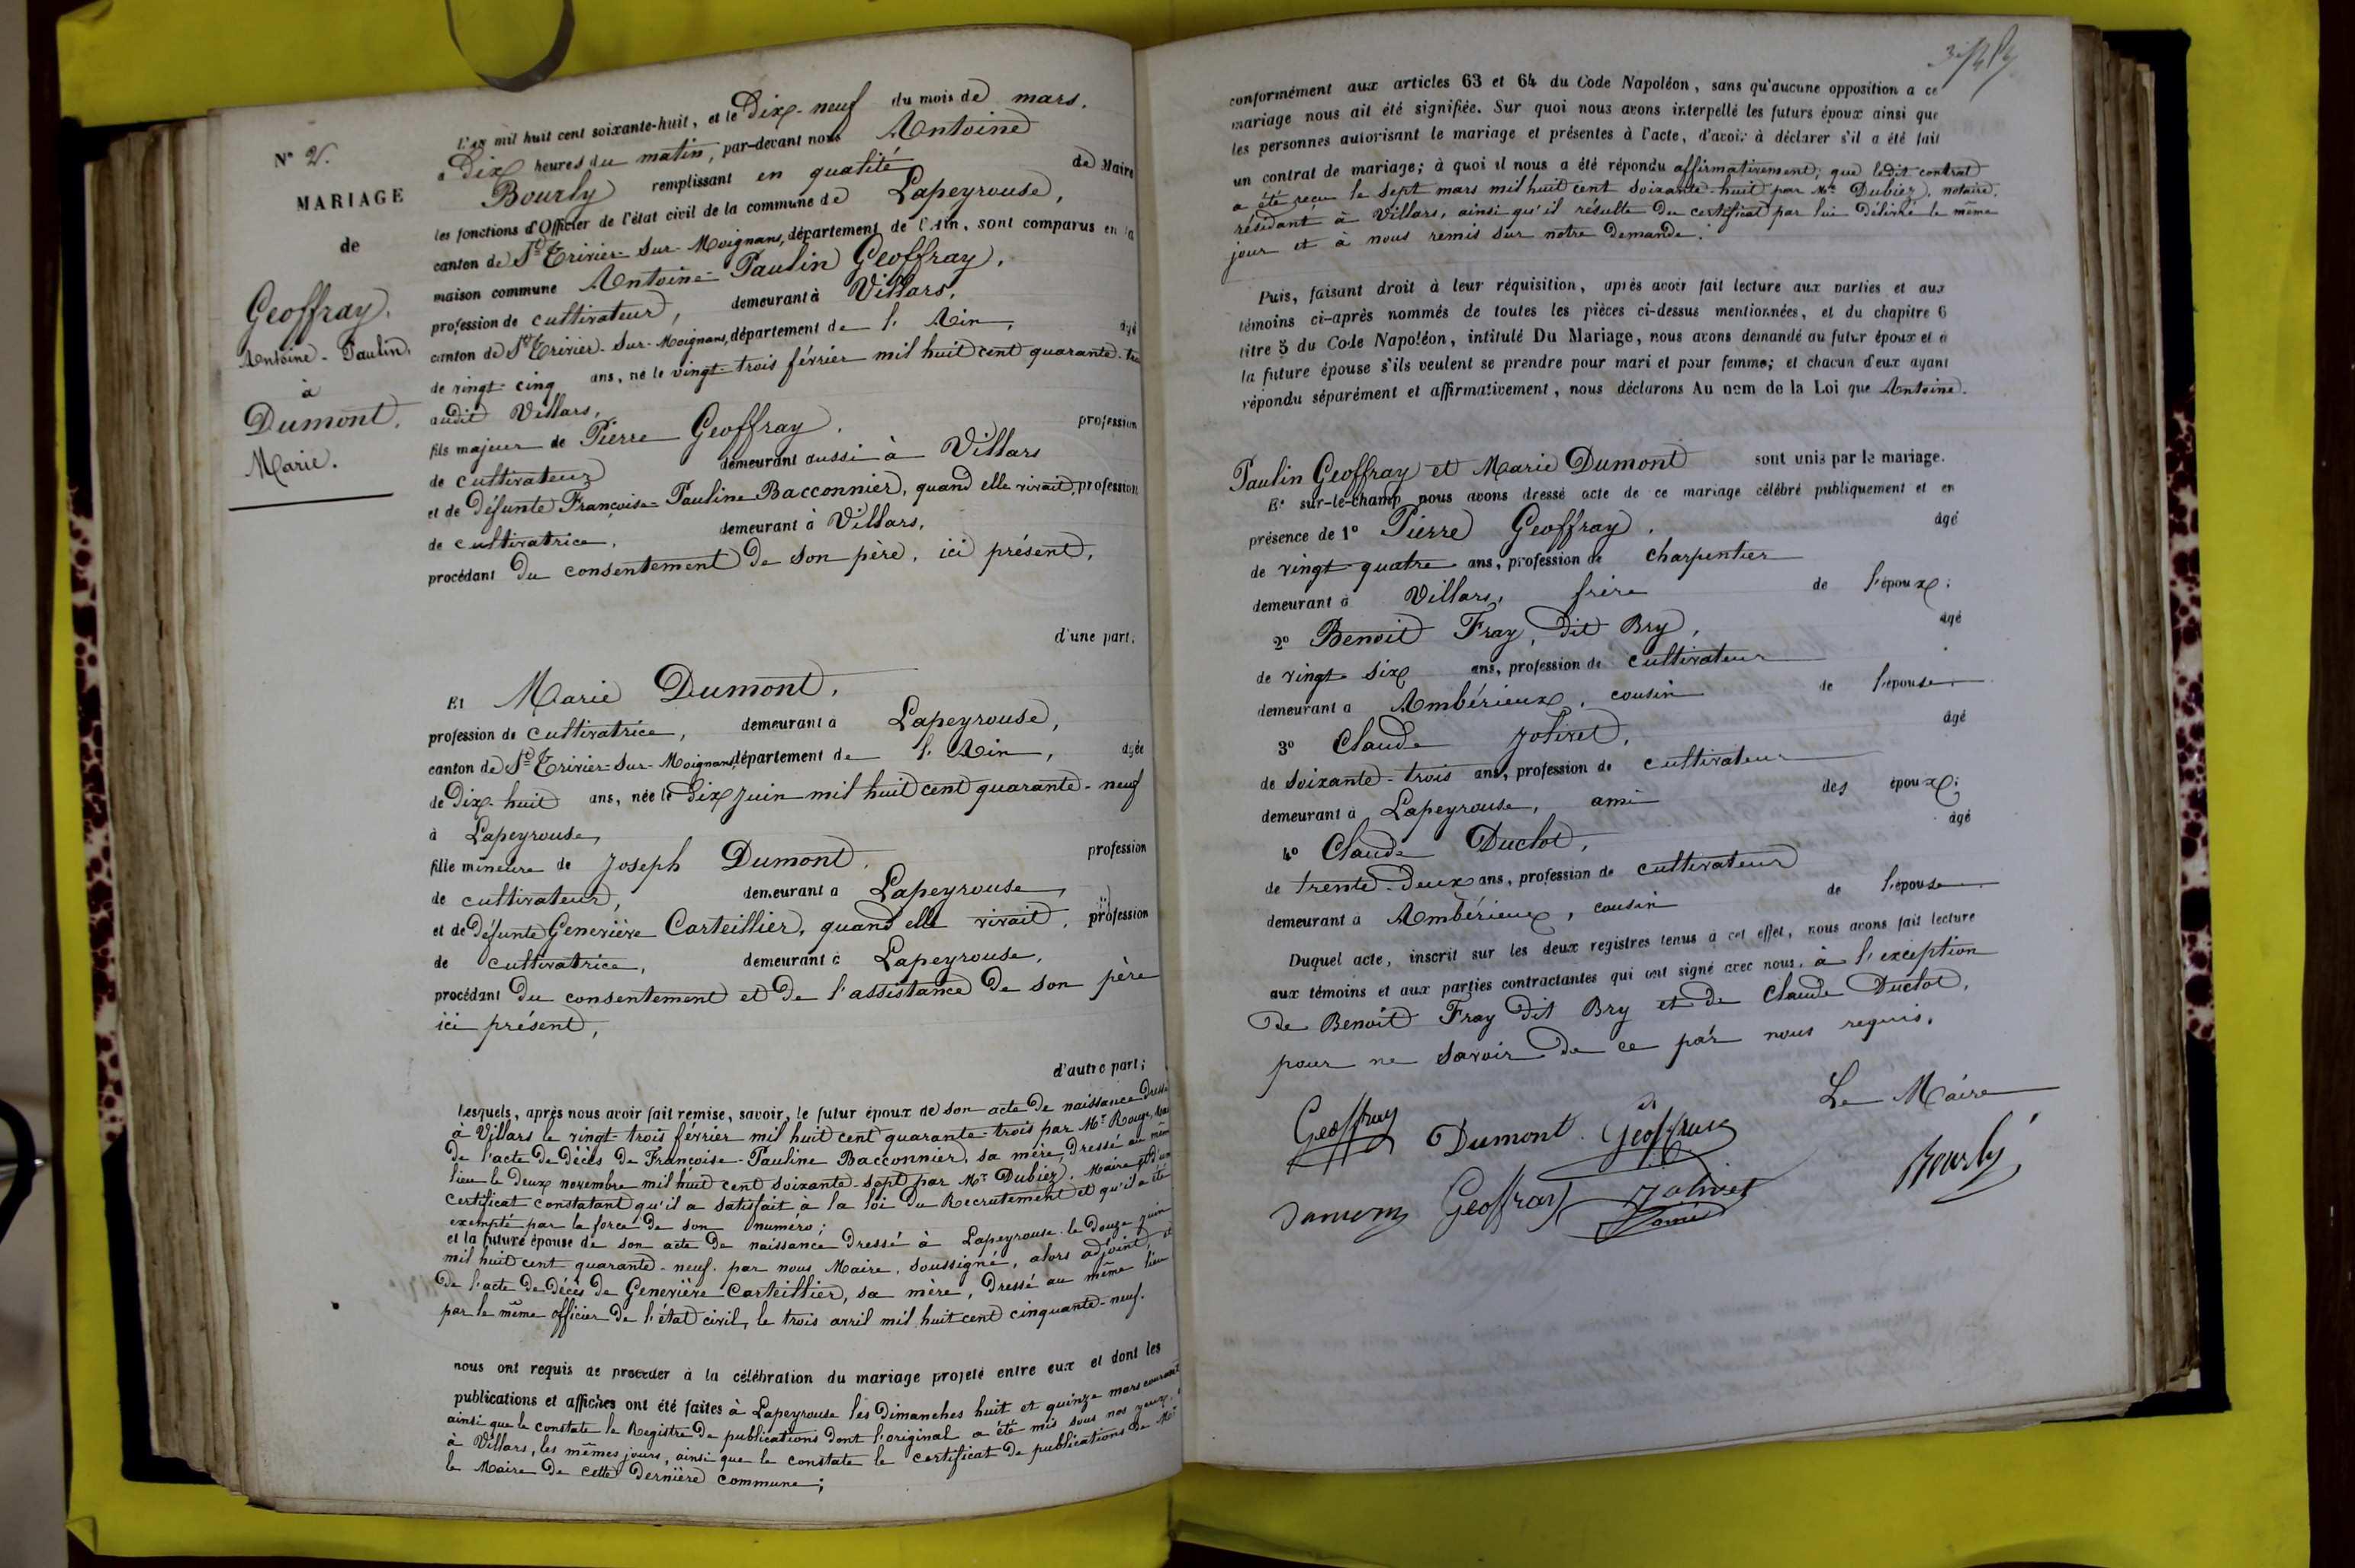 N° 2.
MARIAGE
de
Geoffray,
Antoine-Paulin,
à
Dumont,
Marie.
L'an mil huit cent soixante-huit, et le Dix-neuf du mois de mars,
à Dix heures du matin, par-devant nous Antoine
Bourly remplissant en qualité de Maire
les fonctions d'Officier de l'état civil de la commune de Lapeyrouse,
canton de St Trivier-sur-Moignans, département de l'Ain, sont comparus en la
maison commune Antoine-Paulin Geoffray,
profession de cultivateur, demeurant à Villars,
canton de St Trivier-sur-Moignans, département de l'Ain, âgé
de vingt-cinq ans, né le vingt-trois février mil huit cent quarante-trois
audit Villars,
fils majeur de Pierre Geoffray, profession
de cultivateur demeurant aussi à Villars
et de défunte Françoise-Pauline Bacconnier, quand elle vivait, profession
de cultivatrice, demeurant à Villars,
procédant du consentement de son père, ici présent,
d'une part;
Et Marie Dumont,
profession de cultivatrice, demeurant à Lapeyrouse,
canton de St Trivier-sur-Moignans, département de l'Ain, âgée
de Dix-huit ans, née le dix juin mil huit cent quarante-neuf
à Lapeyrouse,
fille mineure de Joseph Dumont, profession
de cultivateur, demeurant à Lapeyrouse,
et de défunte Geneviève Carteillier, quand elle vivait, profession
de cultivatrice, demeurant à Lapeyrouse,
procédant du consentement et de l'assistance de son père
ici présent,
d'autre part;
Lesquels, après nous avoir fait remise, savoir, le futur époux de son acte de naissance dressé
à Villars le vingt-trois février mil huit cent quarante-trois par Mr Rouge, Maire
de l'acte de décès de Françoise-Pauline Bacconnier, sa mère, dressé au même
lieu le deux novembre mil huit cent soixante-sept par Mr Dubiez, Maire et d'un
certificat constatant qu'il a satisfait à la loi du Recrutement et qu'il a été
exempté par la force de son numéro;
et la future épouse de son acte de naissance dressé à Lapeyrouse le douze juin
mil huit cent quarante-neuf par nous Maire, soussigné, alors adjoint, et
de l'acte de décès de Geneviève Carteillier, sa mère, dressé au même lieu
par le même officier de l'état civil, le trois avril mil huit cent cinquante-neuf.
nous ont requis de procéder à la célébration du mariage projeté entre eux et dont les
publications et affiches ont été faites à Lapeyrouse les Dimanches huit et quinze mars courant
ainsi que le constate le Registre de publications dont l'original a été mis sous nos yeux, et
à Villars, les mêmes jours, ainsi que le constate le certificat de publications de Mr
le Maire de cette dernière commune;
conformément aux articles 63 et 64 du Code Napoléon, sans qu'aucune opposition a ce
mariage nous ait été signifiée. Sur quoi nous avons interpellé les futurs époux ainsi que
les personnes autorisant le mariage et présentes à l'acte, d'avoir à déclarer s'il a été fait
un contrat de mariage; à quoi il nous a été répondu affirmativement; que ledit contrat
a été reçu le sept mars mil huit cent soixante-huit par Me Dubiez, notaire,
résidant à Villars, ainsi qu'il résulte du certificat par lui délivré le même
jour et à nous remis sur notre demande.
Puis, faisant droit à leur réquisition, après avoir fait lecture aux parties et aux
témoins ci-après nommés de toutes les pièces ci-dessus mentionnées, et du chapitre 6
titre 5 du Code Napoléon, intitulé Du Mariage, nous avons demandé au futur époux et à
la future épouse s'ils veulent se prendre pour mari et pour femme; et chacun d'eux ayant
répondu séparément et affirmativement, nous déclarons Au nom de la Loi que Antoine
Paulin Geoffray et Marie Dumont sont unis par le mariage.
Et sur-le-champ nous avons dressé acte de ce mariage célébré publiquement et en
présence de 1° Pierre Geoffray, âgé
de vingt-quatre ans, profession de charpentier
demeurant à Villars, frère de l'époux;
2° Benoit Fray, dit Bry, âgé
de vingt-six ans, profession de cultivateur
demeurant à Ambérieux, cousin de l'épouse
3° Claude Jolivet, âgé
de soixante-trois ans, profession de cultivateur
demeurant à Lapeyrouse, ami des époux;
4° Claude Duclot, âgé
de trente-deux ans, profession de cultivateur
demeurant à Ambérieux, cousin de l'épouse
Duquel acte, inscrit sur les deux registres tenus à cet effet, nous avons fait lecture
aux témoins et aux parties contractantes qui ont signé avec nous, à l'exception
de Benoît Fray dit Bry et de Claude Duclot,
pour ne savoir de ce par nous requis.
Le Maire
Geoffray Dumont Geoffray
Bourly
Dumont Geoffray Jolivet